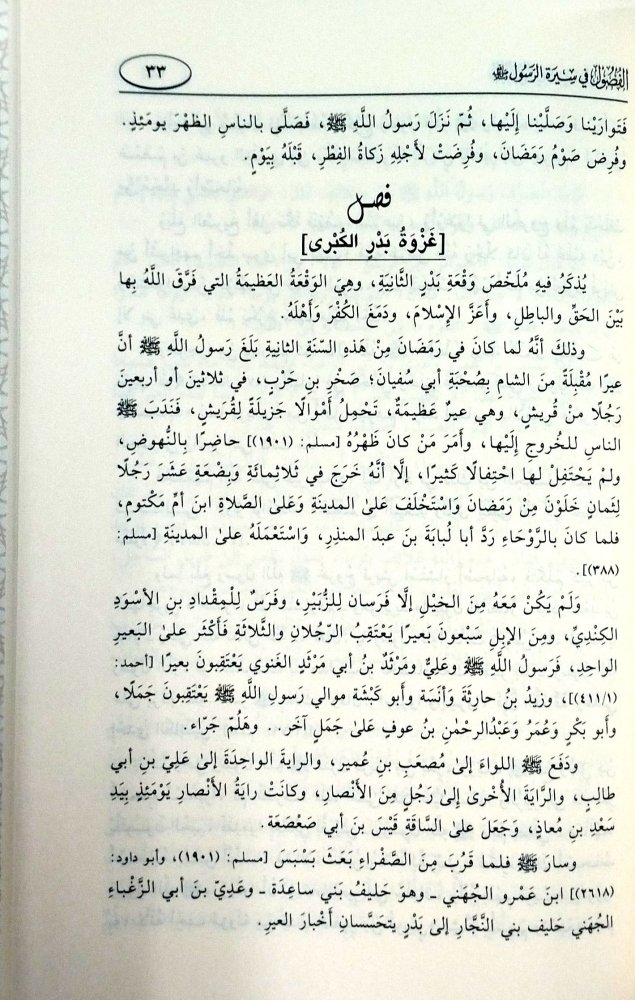 الفُصُولُ في سِيرَة الرَسُول ﷺ
٣٣
فَتَوارَيْنا وَصَلَّيْنا إِلَيْها، ثُمّ نَزَلَ رَسولُ اللَّهِ ﷺ، فَصَلَّى بالناسِ الظهْرَ يومَئِذٍ.
وفُرِضَ صَوْمُ رَمَضَانَ، وفُرِضَتْ لأَجْلِهِ زَكاةُ الفِطْرِ، قَبْلَهُ بِيَوْمٍ.
فصل
[غَزْوَةُ بَدْرٍ الكُبْرى]
يُذكَرُ فيهِ مُلَخّصَ وَقْعَةِ بَدْرٍ الثَّانِيَةِ، وهِيَ الوَقْعَةُ العَظِيمَةُ التي فَرَّقَ اللَّهُ بِها
بَيْنَ الحَقِّ والباطِلِ، وأَعَزَّ الإِسْلامَ، ودَمَغَ الكُفْرَ وَأَهْلَهُ.
وذلكَ أنَّهُ لما كانَ في رَمَضَانَ مِنْ هَذهِ السّنَةِ الثانِيةِ بَلَغَ رَسولُ اللَّهِ ﷺ أنَّ
عيرًا مُقْبِلَةً منَ الشامِ بِصُحْبَةِ أبي سُفيانَ؛ صَخْرِ بنِ حَرْبٍ، في ثلاثينَ أو أربعينَ
رَجُلًا منْ قُريشٍ، وهي عيرٌ عَظيمَةٌ، تَحْمِلُ أمْوالًا جَزيلَةً لِقُرَيشٍ، فَنَدَبَ ﷺ
الناس للخُروجِ إِلَيْها، وأَمَرَ مَنْ كانَ ظَهْرُهُ [مسلم: (١٩٠١)] حاضِرًا بِالنُّهوضِ،
ولمْ يَحْتَفِلْ لها احْتِفالًا كَثيرًا، إلَّا أنَّهُ خَرَجَ في ثَلاثِمائةٍ وَبِضْعَةِ عَشَرَ رَجُلًا
لِثَمانٍ خَلَوْنَ مِنْ رَمَضانَ وَاسْتَخْلَفَ عَلىَ المدينَةِ وَعَلىَ الصَّلاةِ ابنَ أمِّ مَكتومٍ،
فلما كانَ بالرَّوْحَاءِ رَدَّ أبا لُبابَةَ بنَ عبدَ المنذِرِ، وَاسْتَعْمَلَهُ علىَ المدينَةِ [مسلم:
(٣٨٨)].
وَلَمْ يَكُنْ مَعَهُ مِنَ الخيْلِ إلَّا فَرَسان لِلزُّبَيْرِ، وفَرَسٌ لِلْمِقْدادِ بنِ الأَسْوَدِ
الكِنْدِيِّ، ومِنَ الإبِلِ سَبْعونَ بَعيرًا يَعْتَقِبُ الرَّجُلانِ والثَّلاثَةِ فَأَكْثَر علىَ البَعيرِ
الواحِدِ، فَرَسولُ اللَّهِ ﷺ وعَلِيٌّ ومَرْثَدُ بنُ أبي مَرْثَدٍ الغَنوي يَعْتَقِبونَ بَعيرا [أحمد:
(٤١١/١)]، وزيدُ بنُ حارِثَةَ وَأَنَسَة وأبو كَبْشَة موالي رَسولِ اللَّهِ ﷺ يَعْتَقِبونَ جَمَلًا،
وأبو بَكْرٍ وعُمَرُ وَعَبْدُالرحْمٰنِ بنُ عوفٍ عَلىَ جَمَلٍ آخَر.. وهَلُمّ جَرّاء.
ودَفَعَ ﷺ اللواءَ إلىَ مُصعَبِ بنِ عُمير، والرايةَ الواحِدَةَ إلىَ عَلِيّ بنِ أبي
طالِبٍ، والرَّايَةَ الأُخْرىَ إلىَ رَجُلٍ مِنَ الأنْصارِ، وكانَتْ رايَةُ الأنْصارِ يَوْمَئِذٍ بِيَدِ
سَعْدِ بنِ مُعاذٍ، وَجَعَلَ علىَ السَّاقَةِ قَيْسَ بنَ أبي صَعْصَعَة.
وسارَ ﷺ فلما قَرُبَ مِنَ الصَّفْراءِ بَعَثَ بَسْبَسَ [مسلم: (١٩٠١)، وأبو داود:
(٢٦١٨)] ابنَ عَمْرو الجُهَني ـ وهوَ حَليفُ بَني ساعِدَة ـ وعَدِيّ بنَ أبي الزَّغْباءِ
الجُهَني حَليف بني النَّجّارِ إلىَ بَدْرٍ يتحَسَّسانِ أَخْبارَ العيرِ.